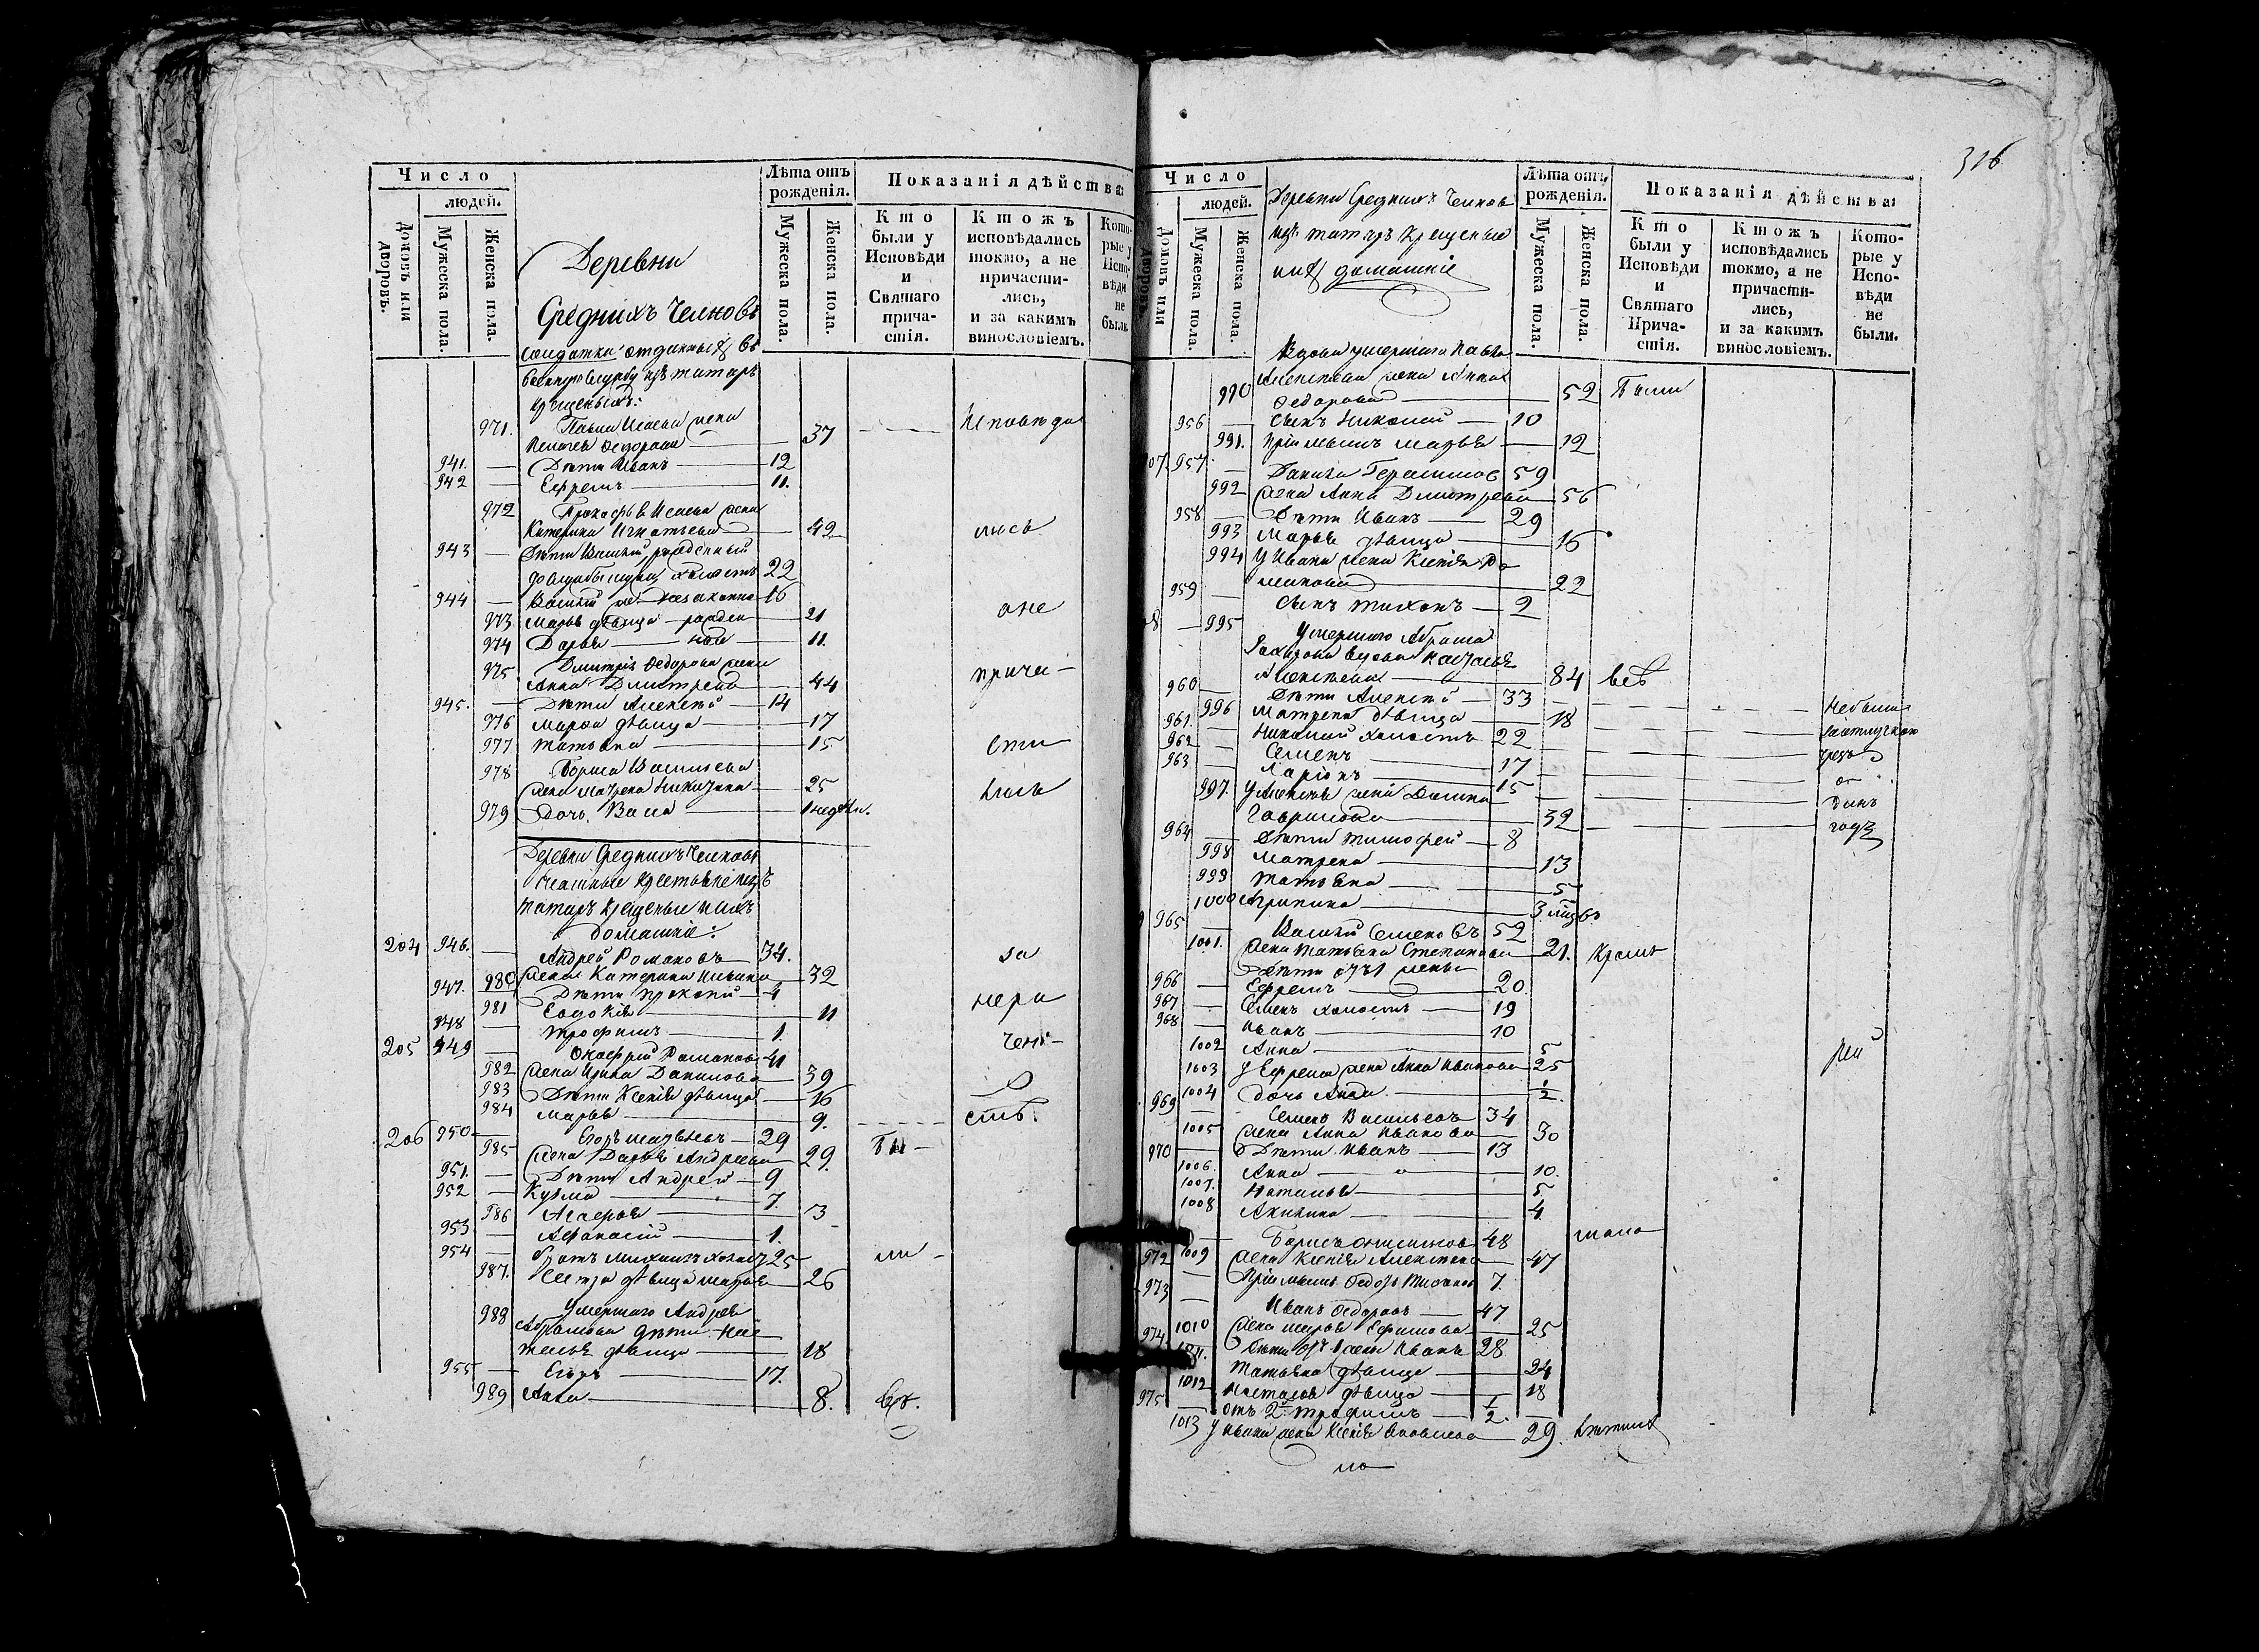 Число
людей.
Домовъ или дворовъ.
Мужеска пола.
Женска пола.
Лѣта отъ рожденія.
Мужеска пола.
Женска пола.
Показанія дѣйства:
Кто были у Исповѣди и Святаго причастія.
Ктожъ исповѣдались токмо, а не причастились, и за какимъ винословіемъ.
Которые у Исповѣди не были.
Деревни
Среднихъ Челновъ
солдатки отданныхъ въ
военную службу изъ татаръ
крещеныхъ:
971. Павла Исаева жена
Федорова 37 Исповѣда
941. — Дѣти Иванъ — 12
942 — Ефремъ — 11.
972 Прокофья Исаева жена
Катерина Игнатьева — 42 лись
943 — Дѣти Василий рожденный
до службы холостъ 22
944 — Василий не 16
973 Марья дѣвица рожден 21 а не
974 Дарья ная 11.
975 Дмитрія Федорова жена
Анна Дмитрева — 44 прича-
945. — Дѣти Алексѣй — 14
976 Марфа дѣвица — 17
977 Татьяна — 15 сти
978 Бориса Васильева
жена Матрена Никитина — 25 лись
979 Дочь Васа — 1 недѣли.
Деревни Среднихъ Челновъ
крестьяне изъ
татаръ крещеные и ихъ
домашніе:
204 946. — Андрей Романовъ — 34. за
980 жена Катерина — 32
947. — Дѣти Прокопій — 4 нера
981 Евдокія — 11
948 — Трофимъ — 1. чені-
205 949 — Романовъ 41
982 жена Ирина Данилова — 39
983 Дѣти Ксенія дѣвица — 16
984 Марья — 9. емъ.
206 950 — Егоръ Матвѣевъ — 29 Бы-
985 жена Дарья Андреева — 29.
951. — Дѣти Андрей — 9
952 — Кузма — 7.
986 — 3
953 — Афанасій — 1.
954 — братъ Михаилъ холостъ 25 ли-
987. Сестра дѣвица Марья — 26
988 Умершаго Андрея
Абрамова дѣти: На-
талья дѣвица — 18
955 — Егоръ — 17.
989 Анна — 8. Всѣ.
316
Число
людей.
Домовъ или дворовъ.
Мужеска пола.
Женска пола.
Деревни Среднихъ Челновъ
изъ татаръ крещеные
и ихъ домашніе
Лѣта отъ рожденія.
Мужеска пола.
Женска пола.
Показанія дѣйства:
Кто были у Исповѣди и Святаго Причастія.
Ктожъ исповѣдались токмо, а не причастились, и за какимъ винословіемъ.
Которые у Исповѣди не были.
Вдова умершаго Павла
990 Алексѣева жена Анна
Федорова — 52 Были
956 — Сынъ Николай — 10
991. Пріемышъ Марья — 12
957 — Данила Герасимовъ 59
992 жена Анна Дмитрева — 56
958 — Дѣти Иванъ — 29
993 Марья дѣвица — 16
994 У Ивана жена Ксенія Ро
манова — 22
959 — Сынъ Тихонъ — 2
995 Умершаго Абрама
Захарова вдова Наталья
Алексѣева — 84 всѣ
960 — Дѣти Алексѣй — 33 Небыли
996 Матрена дѣвица — 18
961. — Николай холостъ 22 заотлучкою
962 — Семенъ — 17 чрезъ
963 — Ларіонъ — 15 о-
997. У Алексѣя жена
Гаврилова — 32 динъ
964 — Дѣти Тимофей — 8 годъ
998 Матрена — 13
999 Татьяна — 5
1000 Агрипина — 3 мѣс
965 — Василій Семеновъ 52
1001. жена Татьяна Степанова — 21. Кромѣ
Дѣти отъ 1 жены
966 — Ефремъ — 20
967 — Семенъ холостъ — 19
968 — Иванъ — 10
1002 Анна — 5
1003 У Ефрема жена Анна Иванова 25
1004 дочь Анна. — 1/2.
969 — Семенъ Васильевъ — 34
1005 жена Анна Иванова — 30
970 — Дѣти Иванъ — 13
1006. Анна — 10.
1007. Наталья — 5
1008 Акилина — 4.
— Борисъ 48 мало
972 1009 жена Ксенія Алексѣева — 47
973 — Пріемышъ Федоръ 7.
— Иванъ Федоровъ — 47
974 1010 жена Марья Ефимова — 25
1011. — Дѣти отъ 1 жены Иванъ 28
Татьяна дѣвица — 24
1012 Наталья дѣвица — 18
975 — отъ 2й Трофимъ — 1/2.
1013 У Ивана жена Ксенія — 29. лѣтнихъ